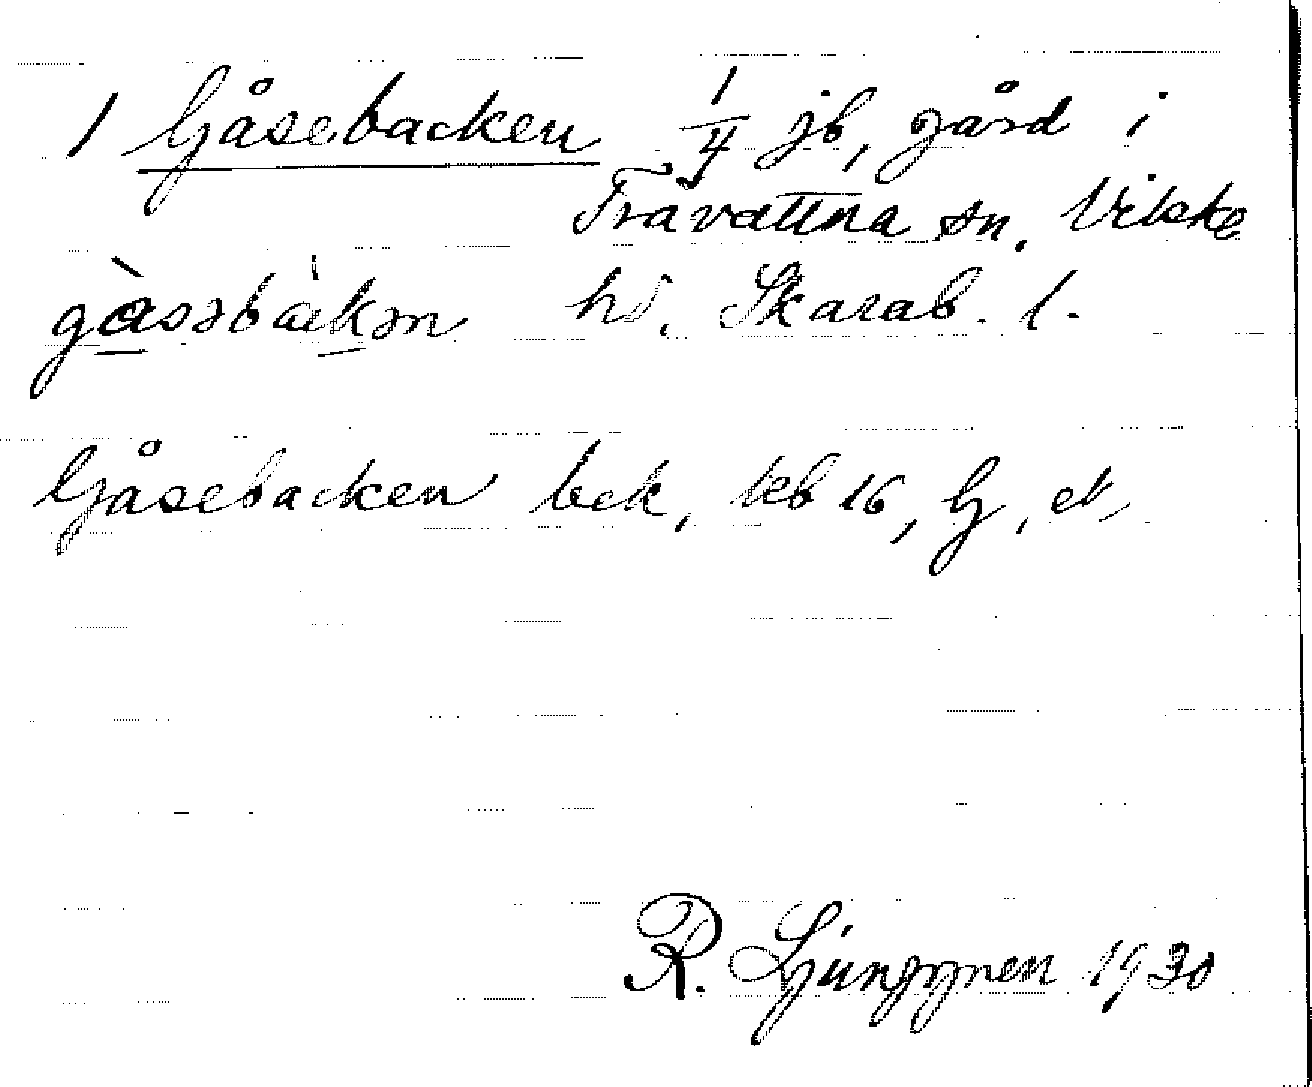 1 Gåsebacken 1/4 jb, gård i
Trävattna sn. Vilske
gåsəbakən hd. Skarab. l.
Gåsebacken bek, keb 16, G, ek,
R. Ljunggren 1930